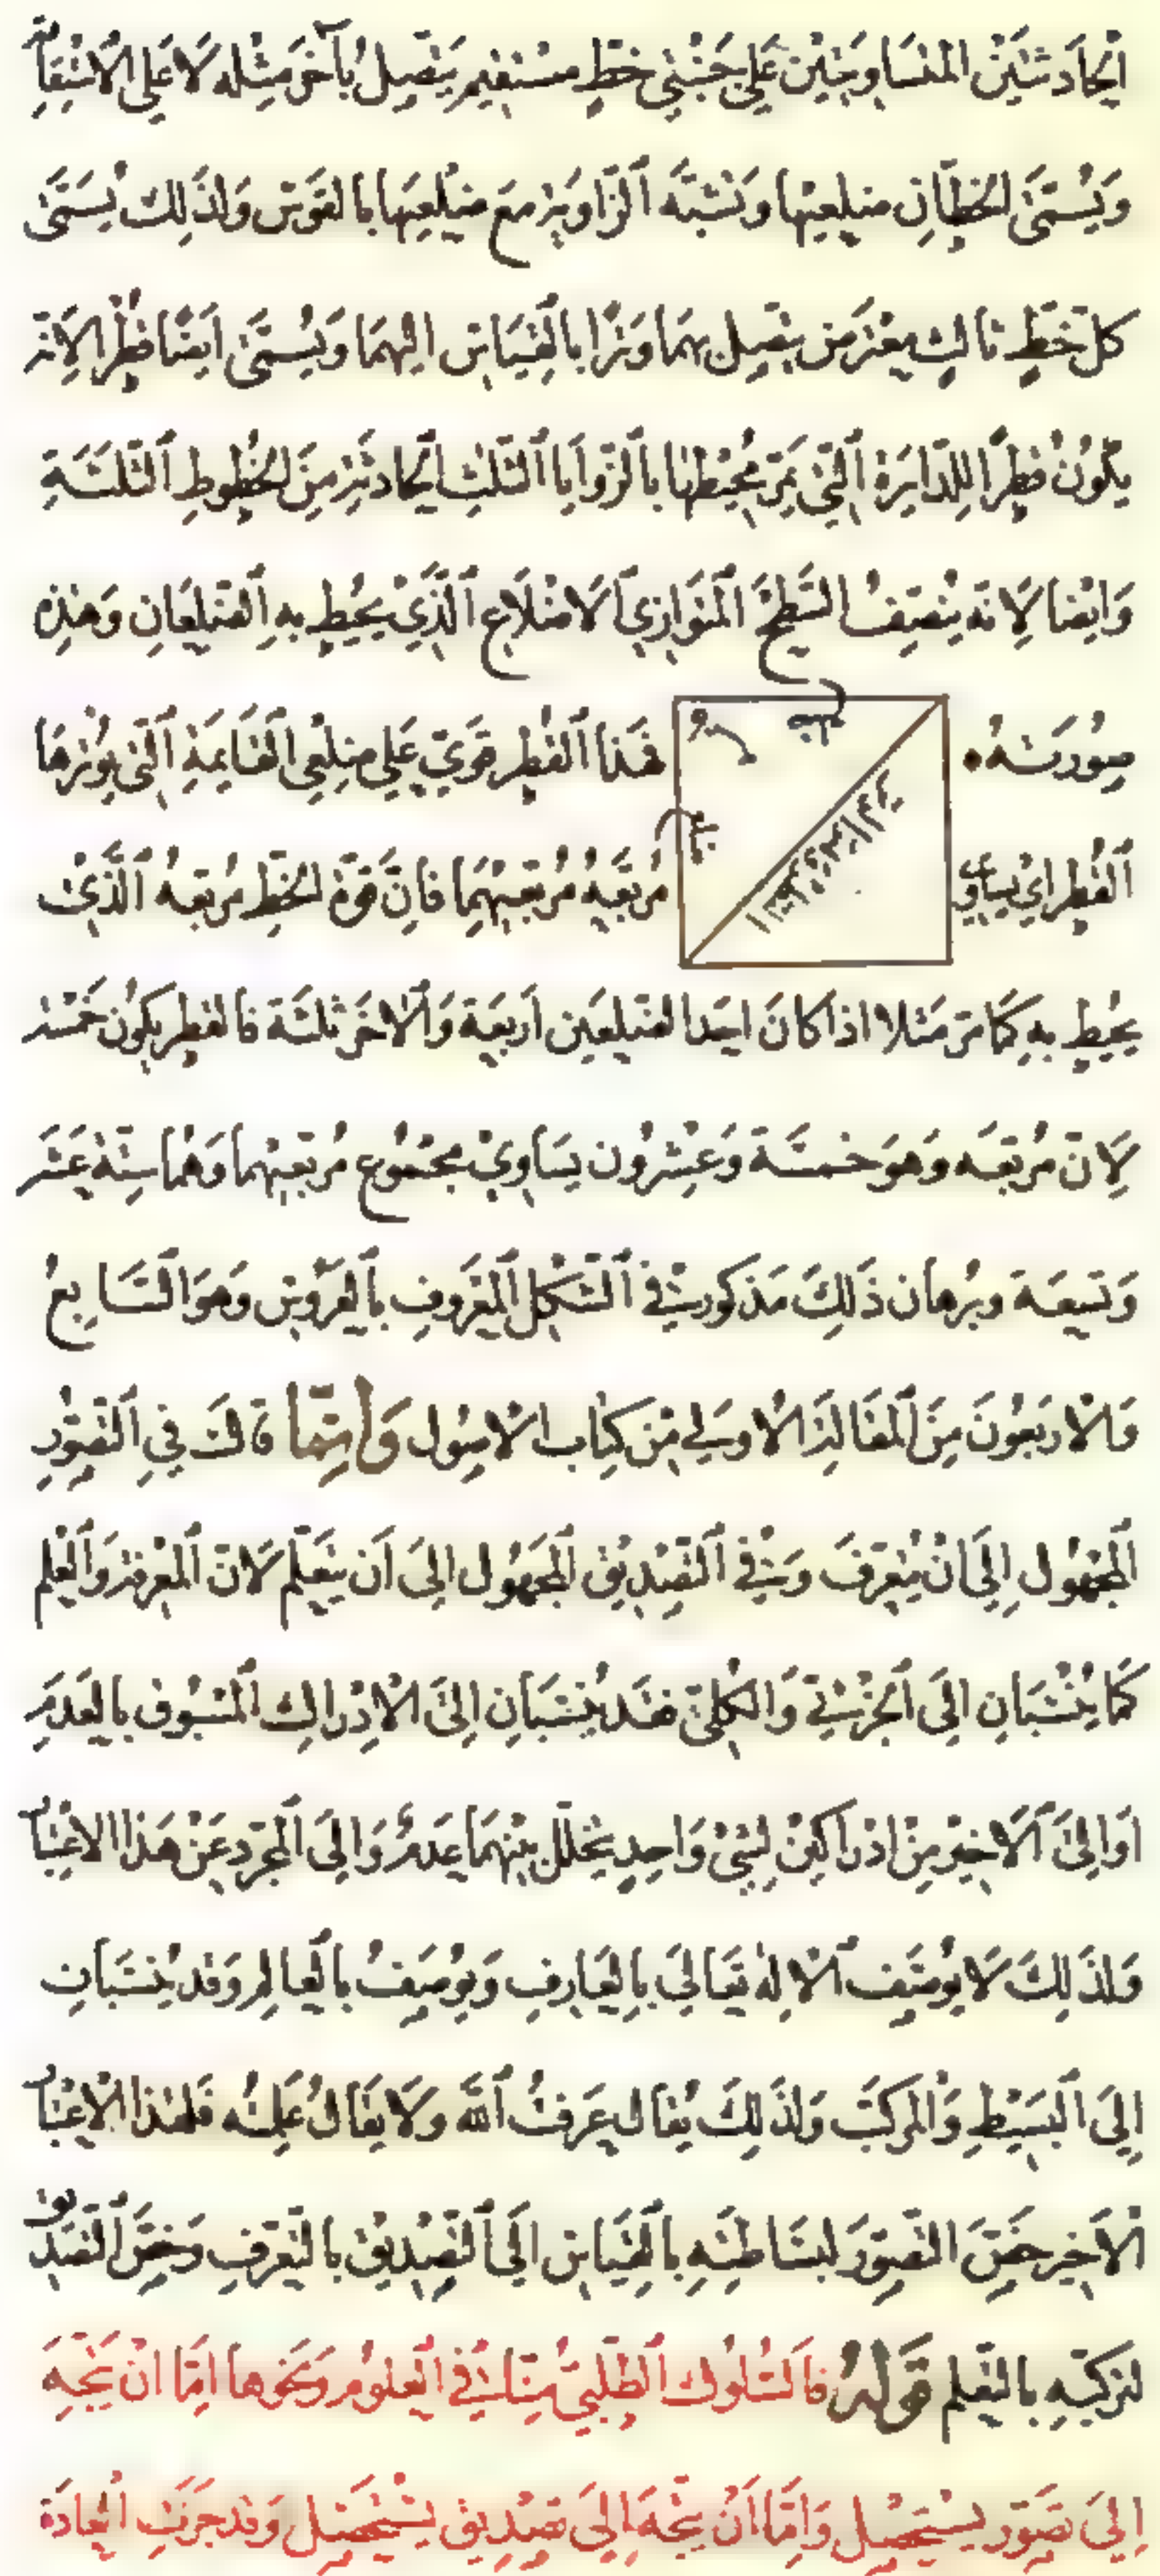 الحادثتين المتساويتين على جنبتي خطٍ مستقيم يتصل بآخر مثله لا على الاستقامة
وَيُسمّى الخطّانِ ضلعيْها وَتشبّه الزاوية مع ضلعيها بالقوس وَلذلك يُسَمّى
كل خطٍ ثالث يفرض يتصل بهمَا وترًا بالقياس اليهمَا وَيُسمّى ايضًا قطرًا لانّه
يكونُ قطرًا للدّايرَة الّتي يمرّ محيطها بالزوايا الثلث الحادثة مِنَ الخطوطِ الثلثةِ
وَايضا لِانّه ينصّفُ السّطحَ المتوازي الاضلاع الّذي يحيط بهِ الضلعَانِ وَهذِه
صُورَته هَذا القطر قويّ عَلى ضلعي القايمةِ الّتي يوترهَا
القطر اي يساوي مُربّعهُ مُربّعيهمَا فانّ قوّة الخط مُربّعهُ الّذي
يحيط بهِ كمَا مرّ مَثلا اذا كانَ احدَا لضلعَين اربعَة وَالاخر ثلثَة فالقطر يكون خمسة
لِانّ مُربّعَه وَهوَ خمسَة وَعِشرُون يسَاوي مجمُوع مُربّعيهما وَهُما ستّة عَشَر
وَتسعَة وبرُهان ذَلِكَ مَذكور في الشّكل المعروفِ بالعَروس وَهوَ السّابعُ
وَالاربَعُونَ مِنَ المقالة الاولى مِن كتاب الاصُول وَانّما قالَ في التّصوّرِ
المجهُول اِلَى انْ يُتعرّفَ وَفي التّصدِيق المجهُول اِلىَ اَن يتعَلّم لانّ المعْرفة وَالعِلم
كمَا يُنسَبَانِ اِلَى الجُزئيّ وَالكُليّ فقَد يُنسَبَانِ اِلىَ الادْراك المسبُوق بالعَدمِ
اَو اِلىَ الاخيْر مِنْ ادْراكينْ لشئ وَاحدٍ يتخلّل بينهمَا عَدمٌ وَاِلىَ المجرّد عَنْ هَذا الاعتبار
وَلذَلِكَ لَا يُوصَف الاله تعَالىَ بِالعَارفِ وَيوصَفُ بالعالِم وَقد يُنسَبَانِ
اِلىَ البَسيْطِ وَالمركّبَ وَلذَلِكَ يُقال عَرفتُ اَللهَ وَلا يقالُ عَلِمتُه فلهذا الاعتبار
الاَخير خصّ التّصوّرَ لبسَاطتِه بالقياس اِلَى التّصْديق بالتّعرّفِ وَخصّ التصديق
لتركّبِه بالتّعلم قَولهُ فالسُّلوك الطّلبيّ مِنّا في العلوم وَنحوها اِمّا انْ يتّجهَ
اِلىَ تصَوّر يسْتحصِل وَاِمّا اَنْ يتّجهَ اِلىَ تصْدِيق يسْتحصَل وَقد جرَتِ العَادَة